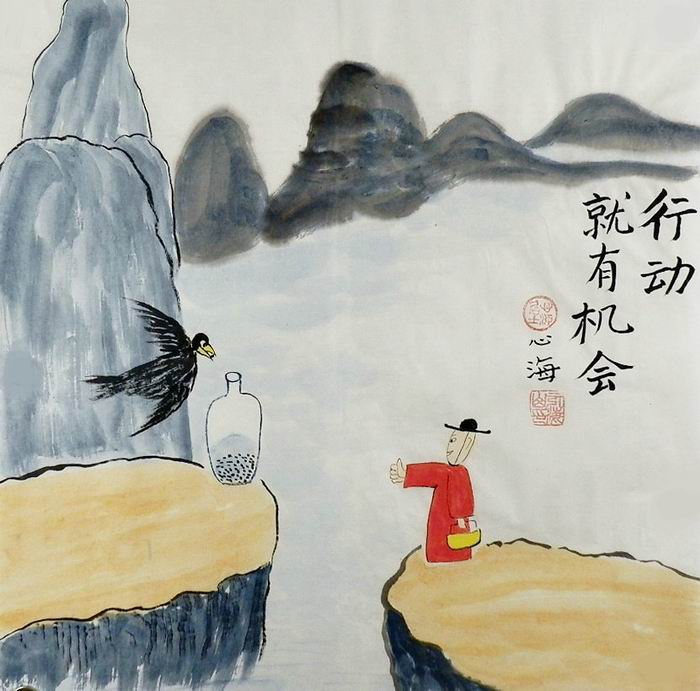 行动
就有机会
心海